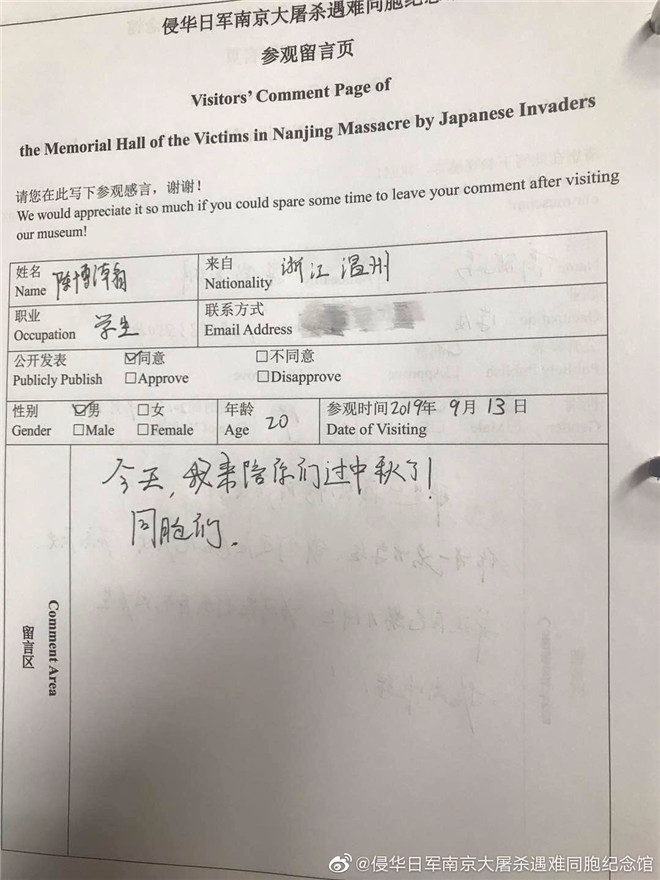 侵华日军南京大屠杀遇难同胞纪念
参观留言页
Visitors' Comment Page of
the Memorial Hall of the Victims in Nanjing Massacre by Japanese Invaders
请您在此写下参观感言，谢谢！
We would appreciate it so much if you could spare some time to leave your comment after visiting
our museum!
姓名 陈博涛 来自 浙江 温州
Name Nationality
职业 学生 联系方式
Occupation Email Address
公开发表 ☑同意 □不同意
Publicly Publish □Approve □Disapprove
性别 ☑男 □女 年龄 20 参观时间2019年 9月 13日
Gender □Male □Female Age Date of Visiting
今天，我来陪你们过中秋了！
同胞们.
Comment Area
留言区
@侵华日军南京大屠杀遇难同胞纪念馆